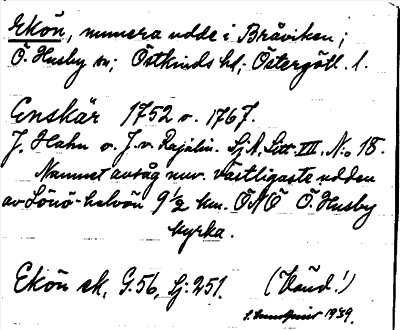 Ekön, numera udde i Bråviken;
Ö. Husby sn; Östkinds hd; Östergötl. l.
Enskär 1752 o. 1767.
J. Hahn o. J. v. Rajalin. Sj. A. Litt. VII. N:o 18.
Namnet avsåg nuv. västligaste udden
av Lönö-halvön 9 1/2 km. ÖNÖ Ö. Husby
kyrka.
Ekön ek. G:56, Sj:251. (Känd!)
1939.